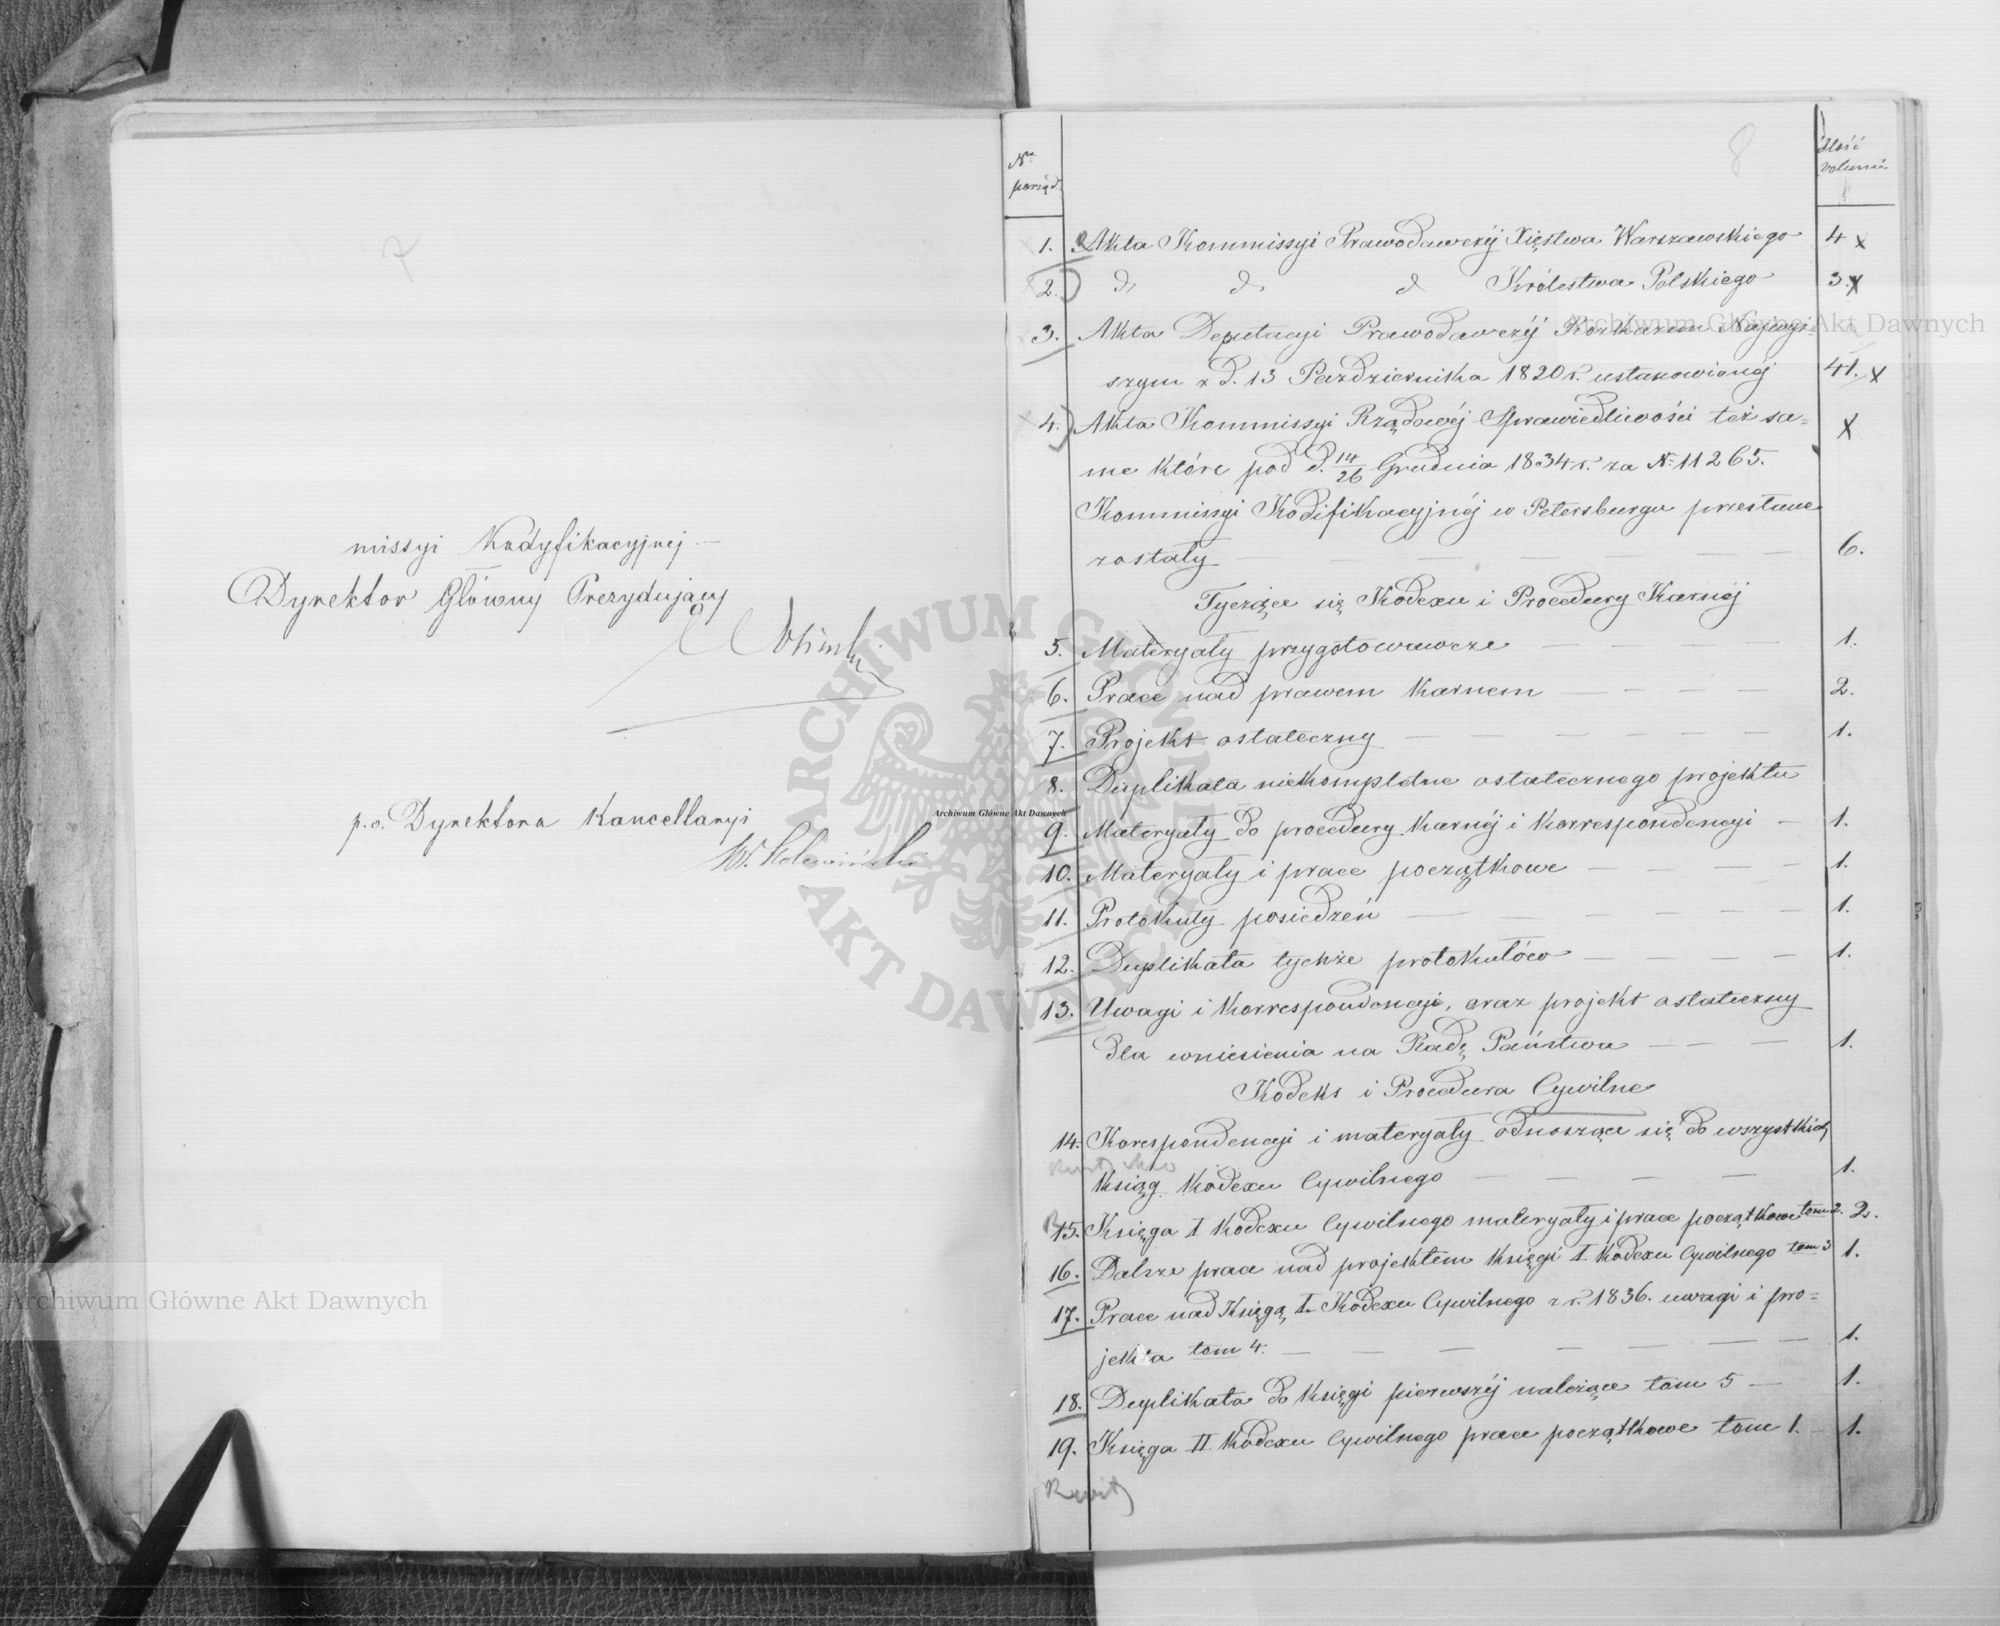 7
missyi Kodyfikacyjnej
Dyrektor Główny Prezydujący
p.o. Dyrektora Kancellaryi
8
No porząd.
Ilość volumin
1. Akta Kommissyi Prawodawczéj Xięstwa Warszawskiego 4 x
2. d d d Królestwa Polskiego 3. x
3. Akta Deputacyi Prawodawczéj Rozkazem Najwyż-
szym z d. 13 Października 1820 r. ustanowionéj 41. x
4. Akta Kommissyi Rządowéj Sprawiedliwości też sa= x
me które pod d. 14/26 Grudnia 1834 r. za No 11265.
Kommissyi Kodifikacyjnéj w Petersburgu przesłane
zostały 6.
Tyczące się Kodexu i Procedury Karnéj
5. Materyały przygotowawcze 1.
6. Prace nad prawem karnem 2.
7. Projekt ostateczny 1.
8. Duplikata niekompletne ostatecznego projektu
9. Materyały do procedury karnéj i korrespondencyi 1.
10. Materyały i prace początkowe 1.
11. Protokuły posiedzeń 1.
12. Duplikata tychże protokułów 1.
13. Uwagi i korrespondencyje, oraz projekt ostateczny
dla wniesienia na Radę Państwa 1.
Kodeks i Procedura Cywilne
14. Korespondencyi i materyały odnoszące się do wszystkich
ksiąg Kodexu Cywilnego 1.
15. Księga I Kodexu Cywilnego materyały i prace początkowe tom 2. 2.
16. Dalsze prace nad projektem księgi I Kodexu Cywilnego tom 3 1.
17. Prace nad Księgą I Kodexu Cywilnego z r. 1836. uwagi i pro=
jekta tom 4. 1.
18. Duplikata do księgi pierwszéj należące tom 5 1.
19. Księga II Kodexu Cywilnego prace początkowe tom 1. 1.
Archiwum Główne Akt Dawnych
ARCHIWUM GŁÓWNE AKT DAWNYCH
Archiwum Główne Akt Dawnych
Archiwum Główne Akt Dawnych